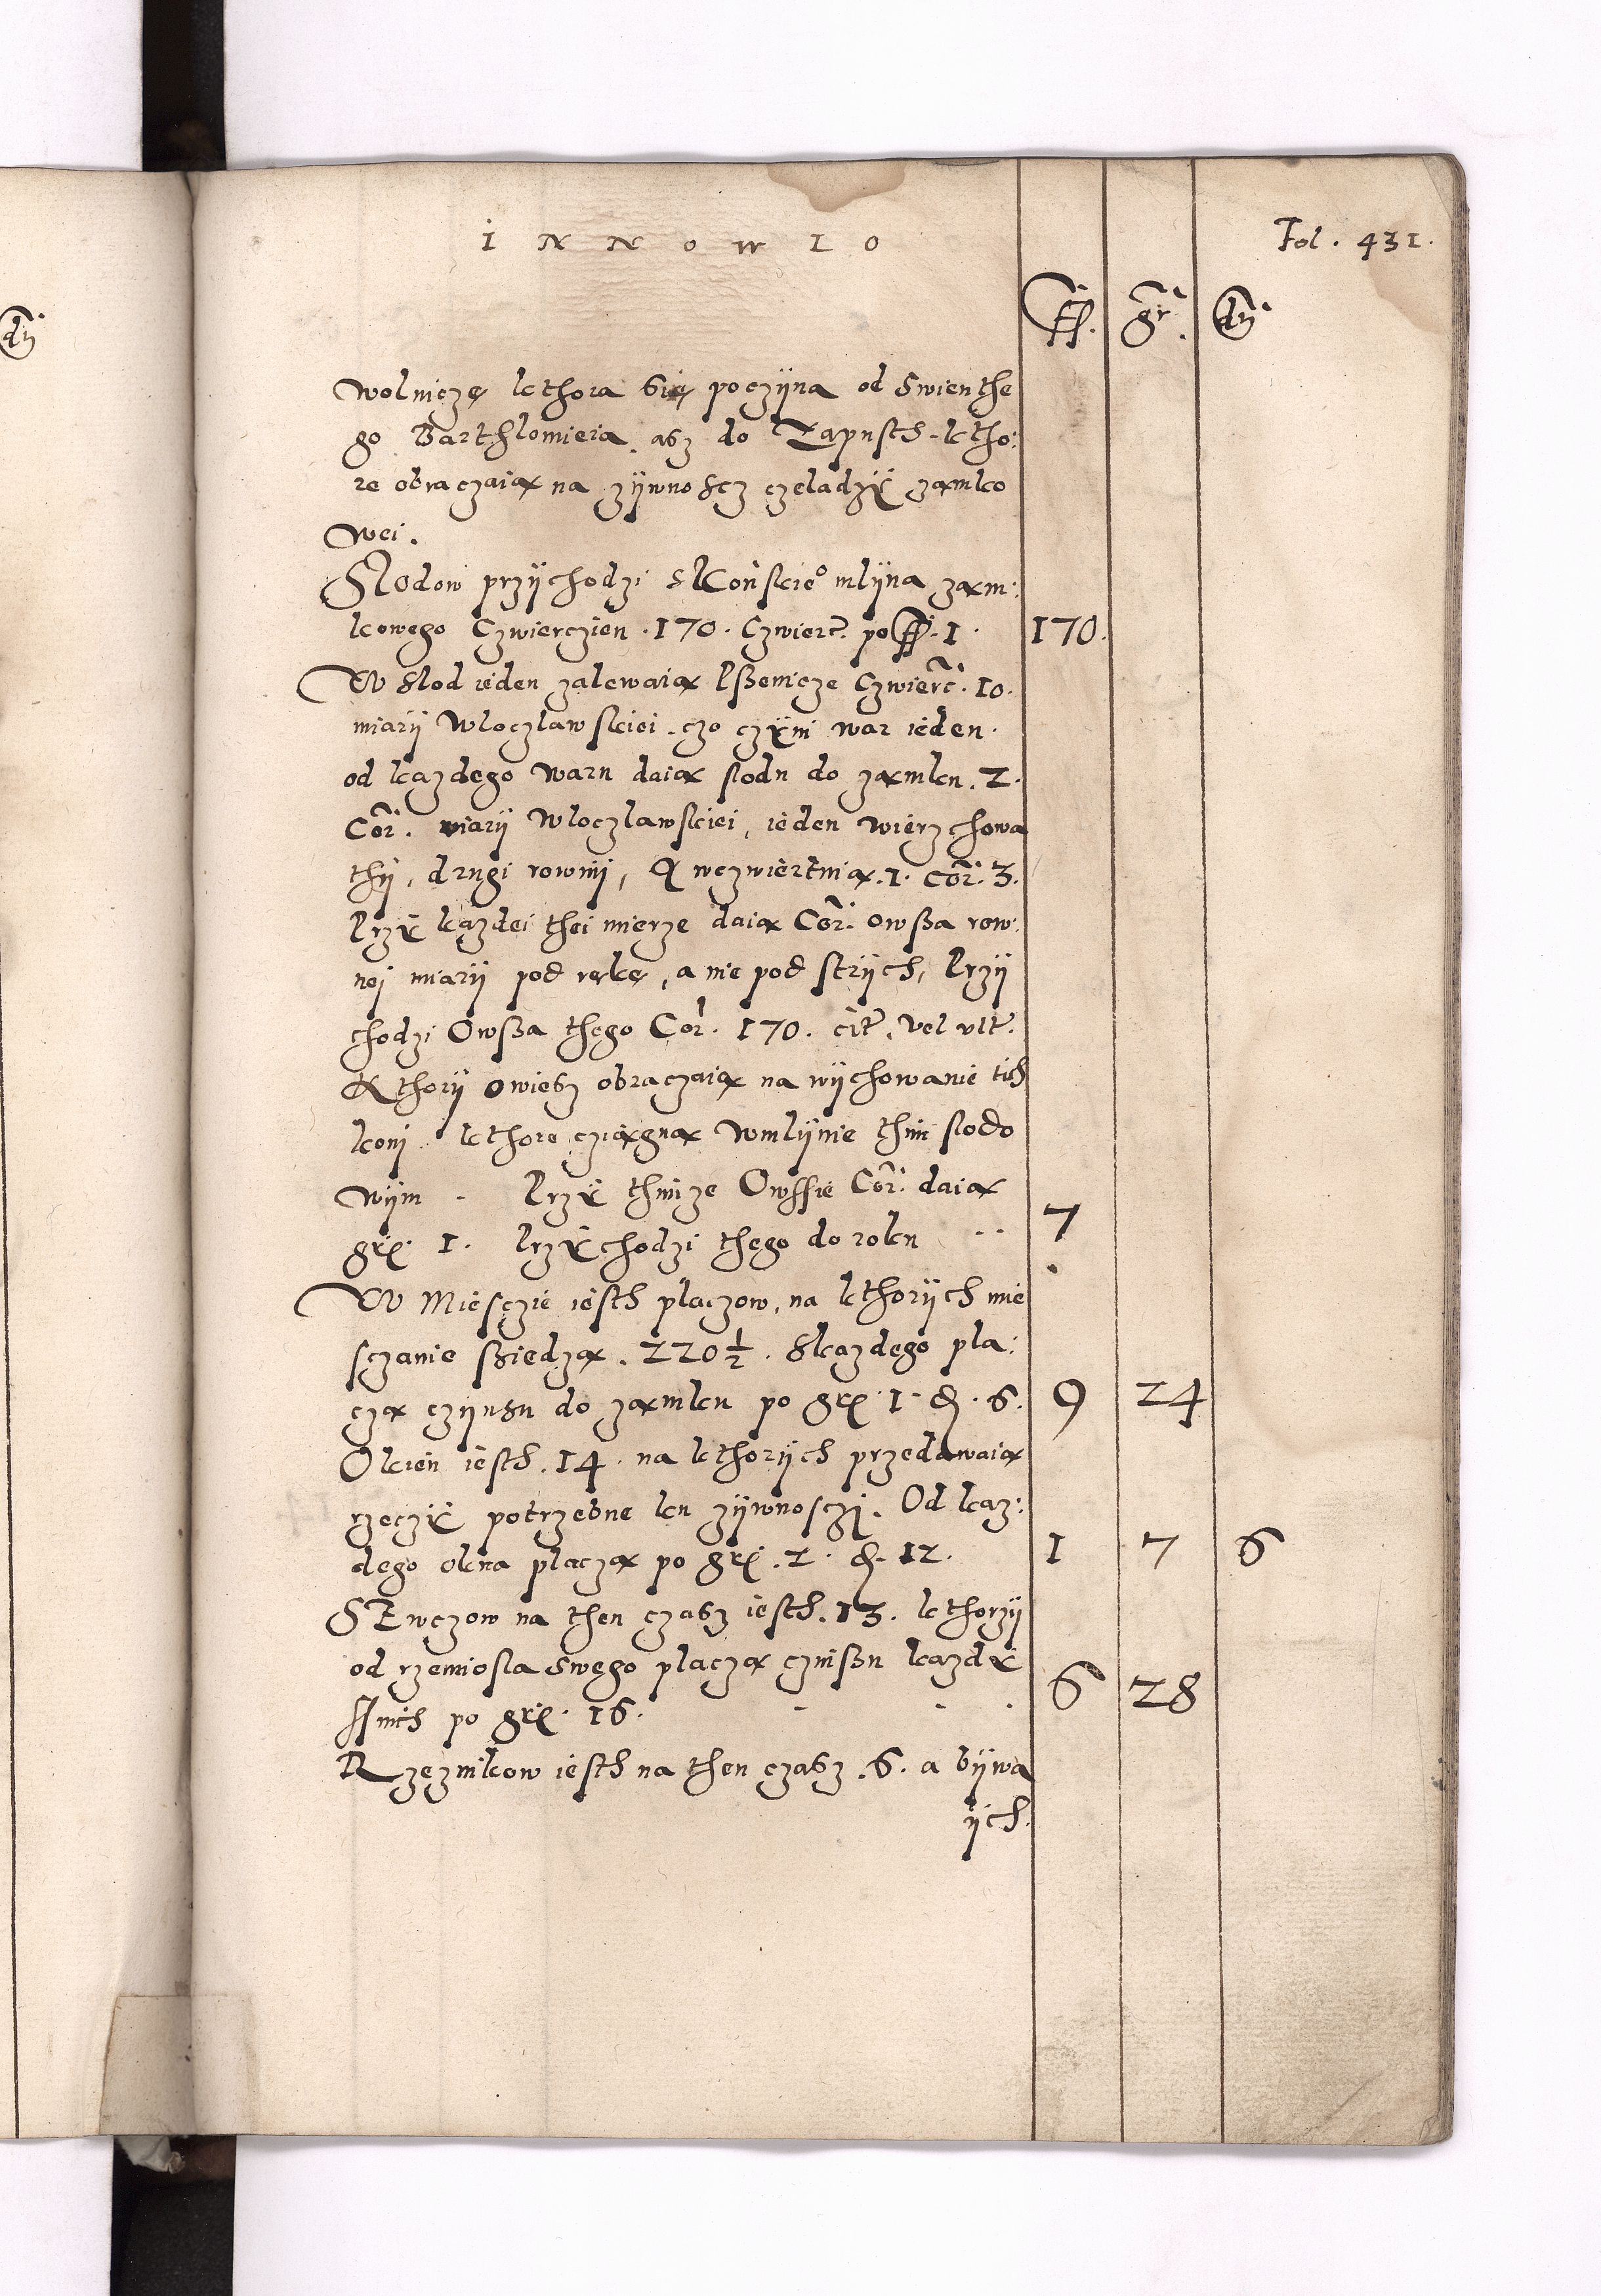 INNOWLO
Fol. 431.
ff. gr. dn
dn
Wolniczę kthora się poczÿna od Swienthe
go Barthlomieia asz do Zapusth. ktho:
re obraczaią na zÿwnoscz czeladzÿ zamko
wei.
Slodow przÿchodzi sKonskie° mlÿna zam:
kowego Czwierczien .170. Czwierc. po ff. 1. 170.
W Slod ieden zalewaią Pszenicze Czwierc. 10.
miarÿ Wloczlawskiei. czo czÿni war ieden.
od kazdego waru daią slodu do zamku. 2.
Cor. miarÿ Wloczlawskiei, ieden wierzchowa
thÿ, drugi rownÿ, A wczwiertnią .1. Cor. 3.
Przÿ kazdei thei mierze daią Cor. owsza row:
nej miarÿ pod rękę, a nie pod strÿch, Przÿ
chodzi Owsza thego Cor. 170. cit. vel ult.
Kthorÿ owiesz obraczaią na wÿchowanie tich
koni kthore cziągną wmlÿnie thim slodo
wÿm . Przÿ thimze Owssie Cor. daią
grͦ. 1. Przÿchodzi thego do roku .. 7
W Miesczie iesth placzow, na kthorÿch mie
sczanie sziedzą . 220 1/2 . Skazdego pla:
cza czÿnsu do zamku po gr. 1. d. 6. 9 24
Okien iesth .14. na kthorÿch przedawaią
rzeczÿ potrzebne ku zÿwnosczÿ. Od kaz:
dego okna placzą po gr. 2. d. 12. 1 7 6
SEwczow na then czasz iesth .13. kthorzÿ
od rzemiosla swego placzą czinszu kazdÿ
snich po gr. 16. . . . 6 28
Rzeznikow iesth na then czasz .6. a bÿwa
ÿch.